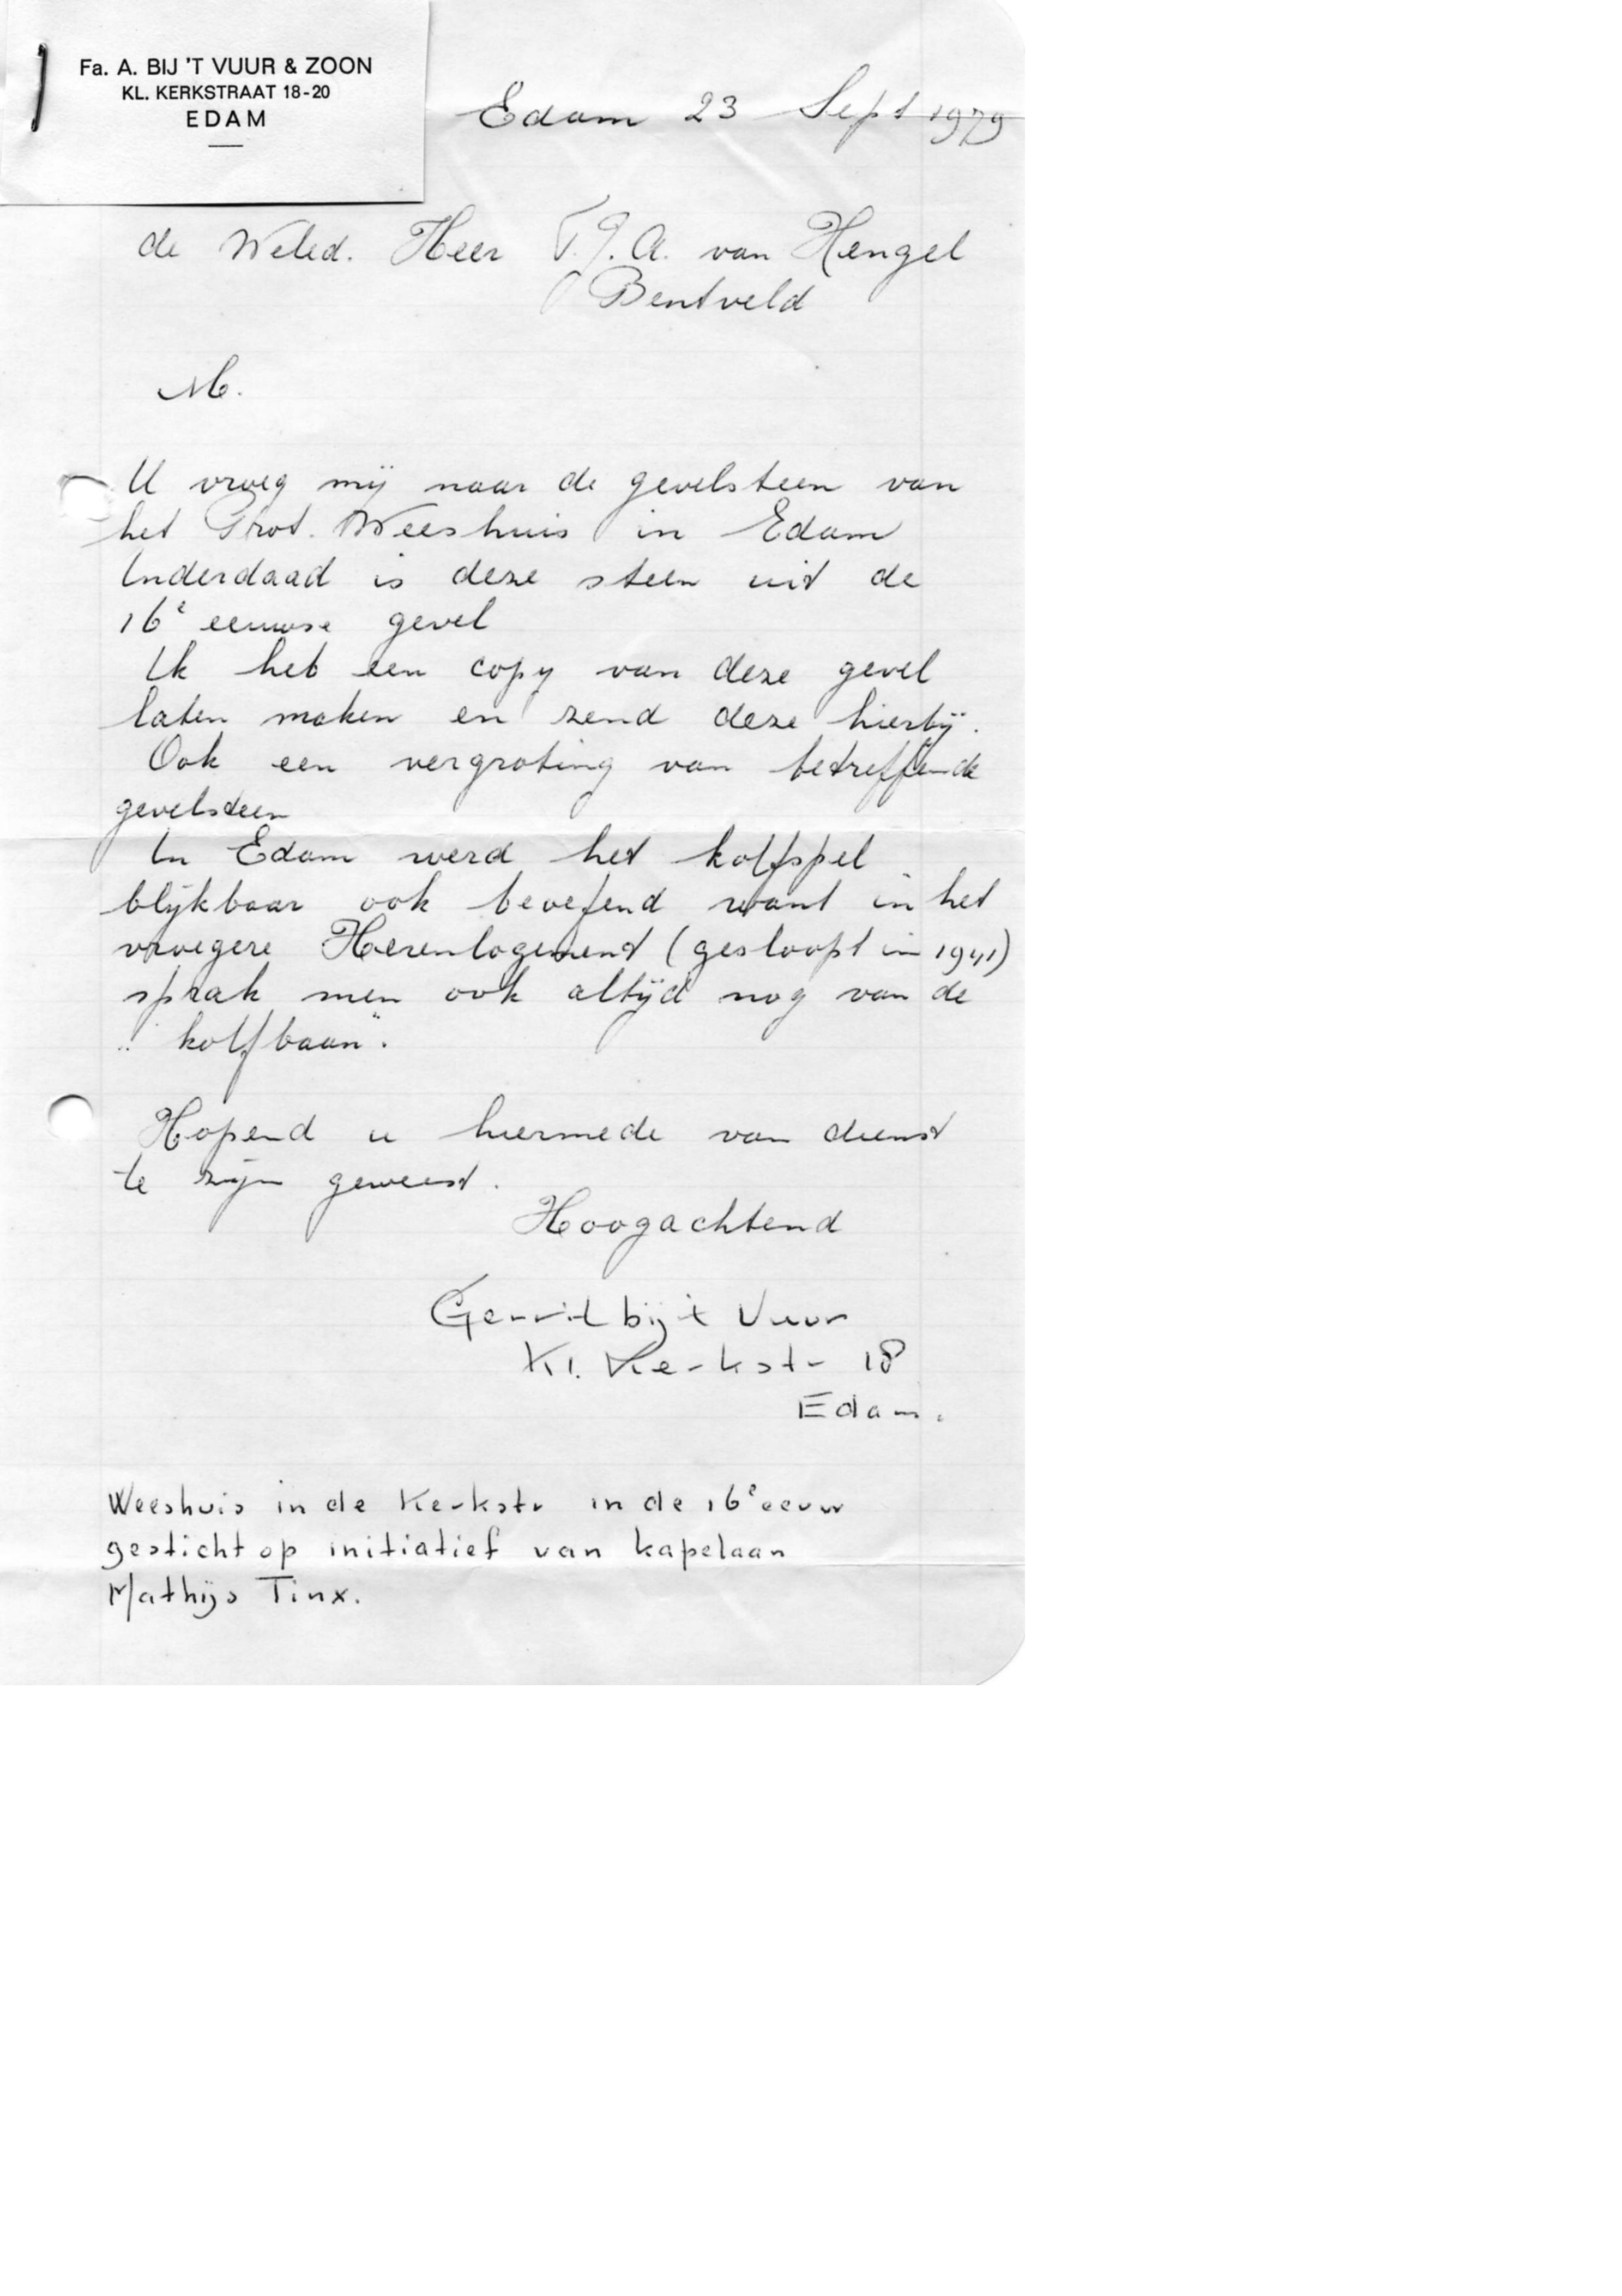 Fa. A. BIJ 'T VUUR & ZOON
KL. KERKSTRAAT 18-20
EDAM
Edam 23 Sept 1979
de Weled. Heer J.A. van Hengel
Bentveld
M.
U vroeg mij naar de gevelsteen van
het Prot. Weeshuis in Edam
Inderdaad is deze steen uit de
16e eeuwse gevel
Ik heb een copy van deze gevel
laten maken en zend deze hierbij.
Ook een vergroting van betreffende
gevelsteen
In Edam werd het kolfspel
blijkbaar ook beoefend want in het
vroegere Herenlogement (gesloopt in 1941)
sprak men ook altijd nog van de
„kolfbaan".
Hopend u hiermede van dienst
te zijn geweest.
Hoogachtend
Gerrit bij 't Vuur
Kl. Kerkstr 18
Edam.
Weeshuis in de Kerkstr in de 16e eeuw
gesticht op initiatief van kapelaan
Mathijs Tinx.